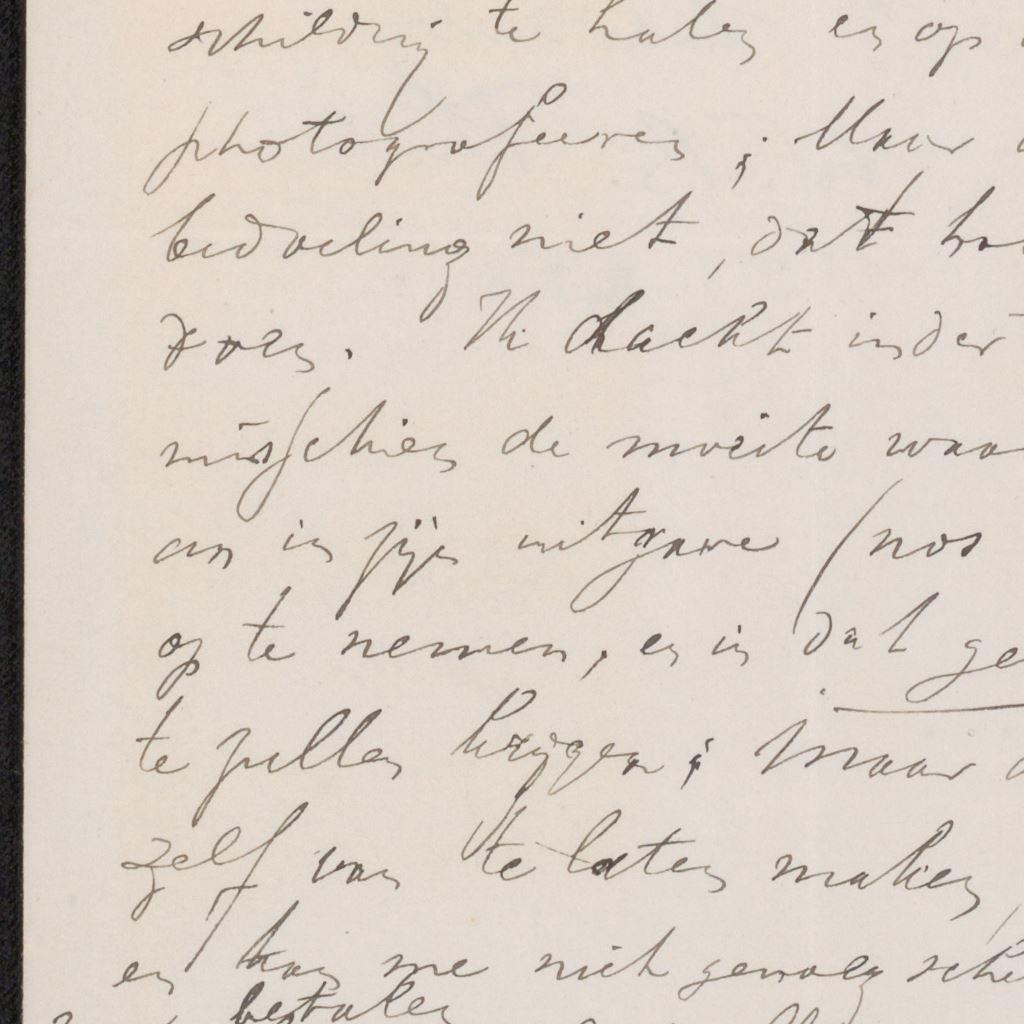 schildrij te halen en op
photografeeren ; Maar
bedoeling niet, dat
doen. Ik dacht inder
misschien de moeite waar
om in zijn uitgave (nos
op te nemen, en in dat ge
te zullen krijgen ; maar
zelf van te laten maken,
en kan me niet genoeg sche
betalen